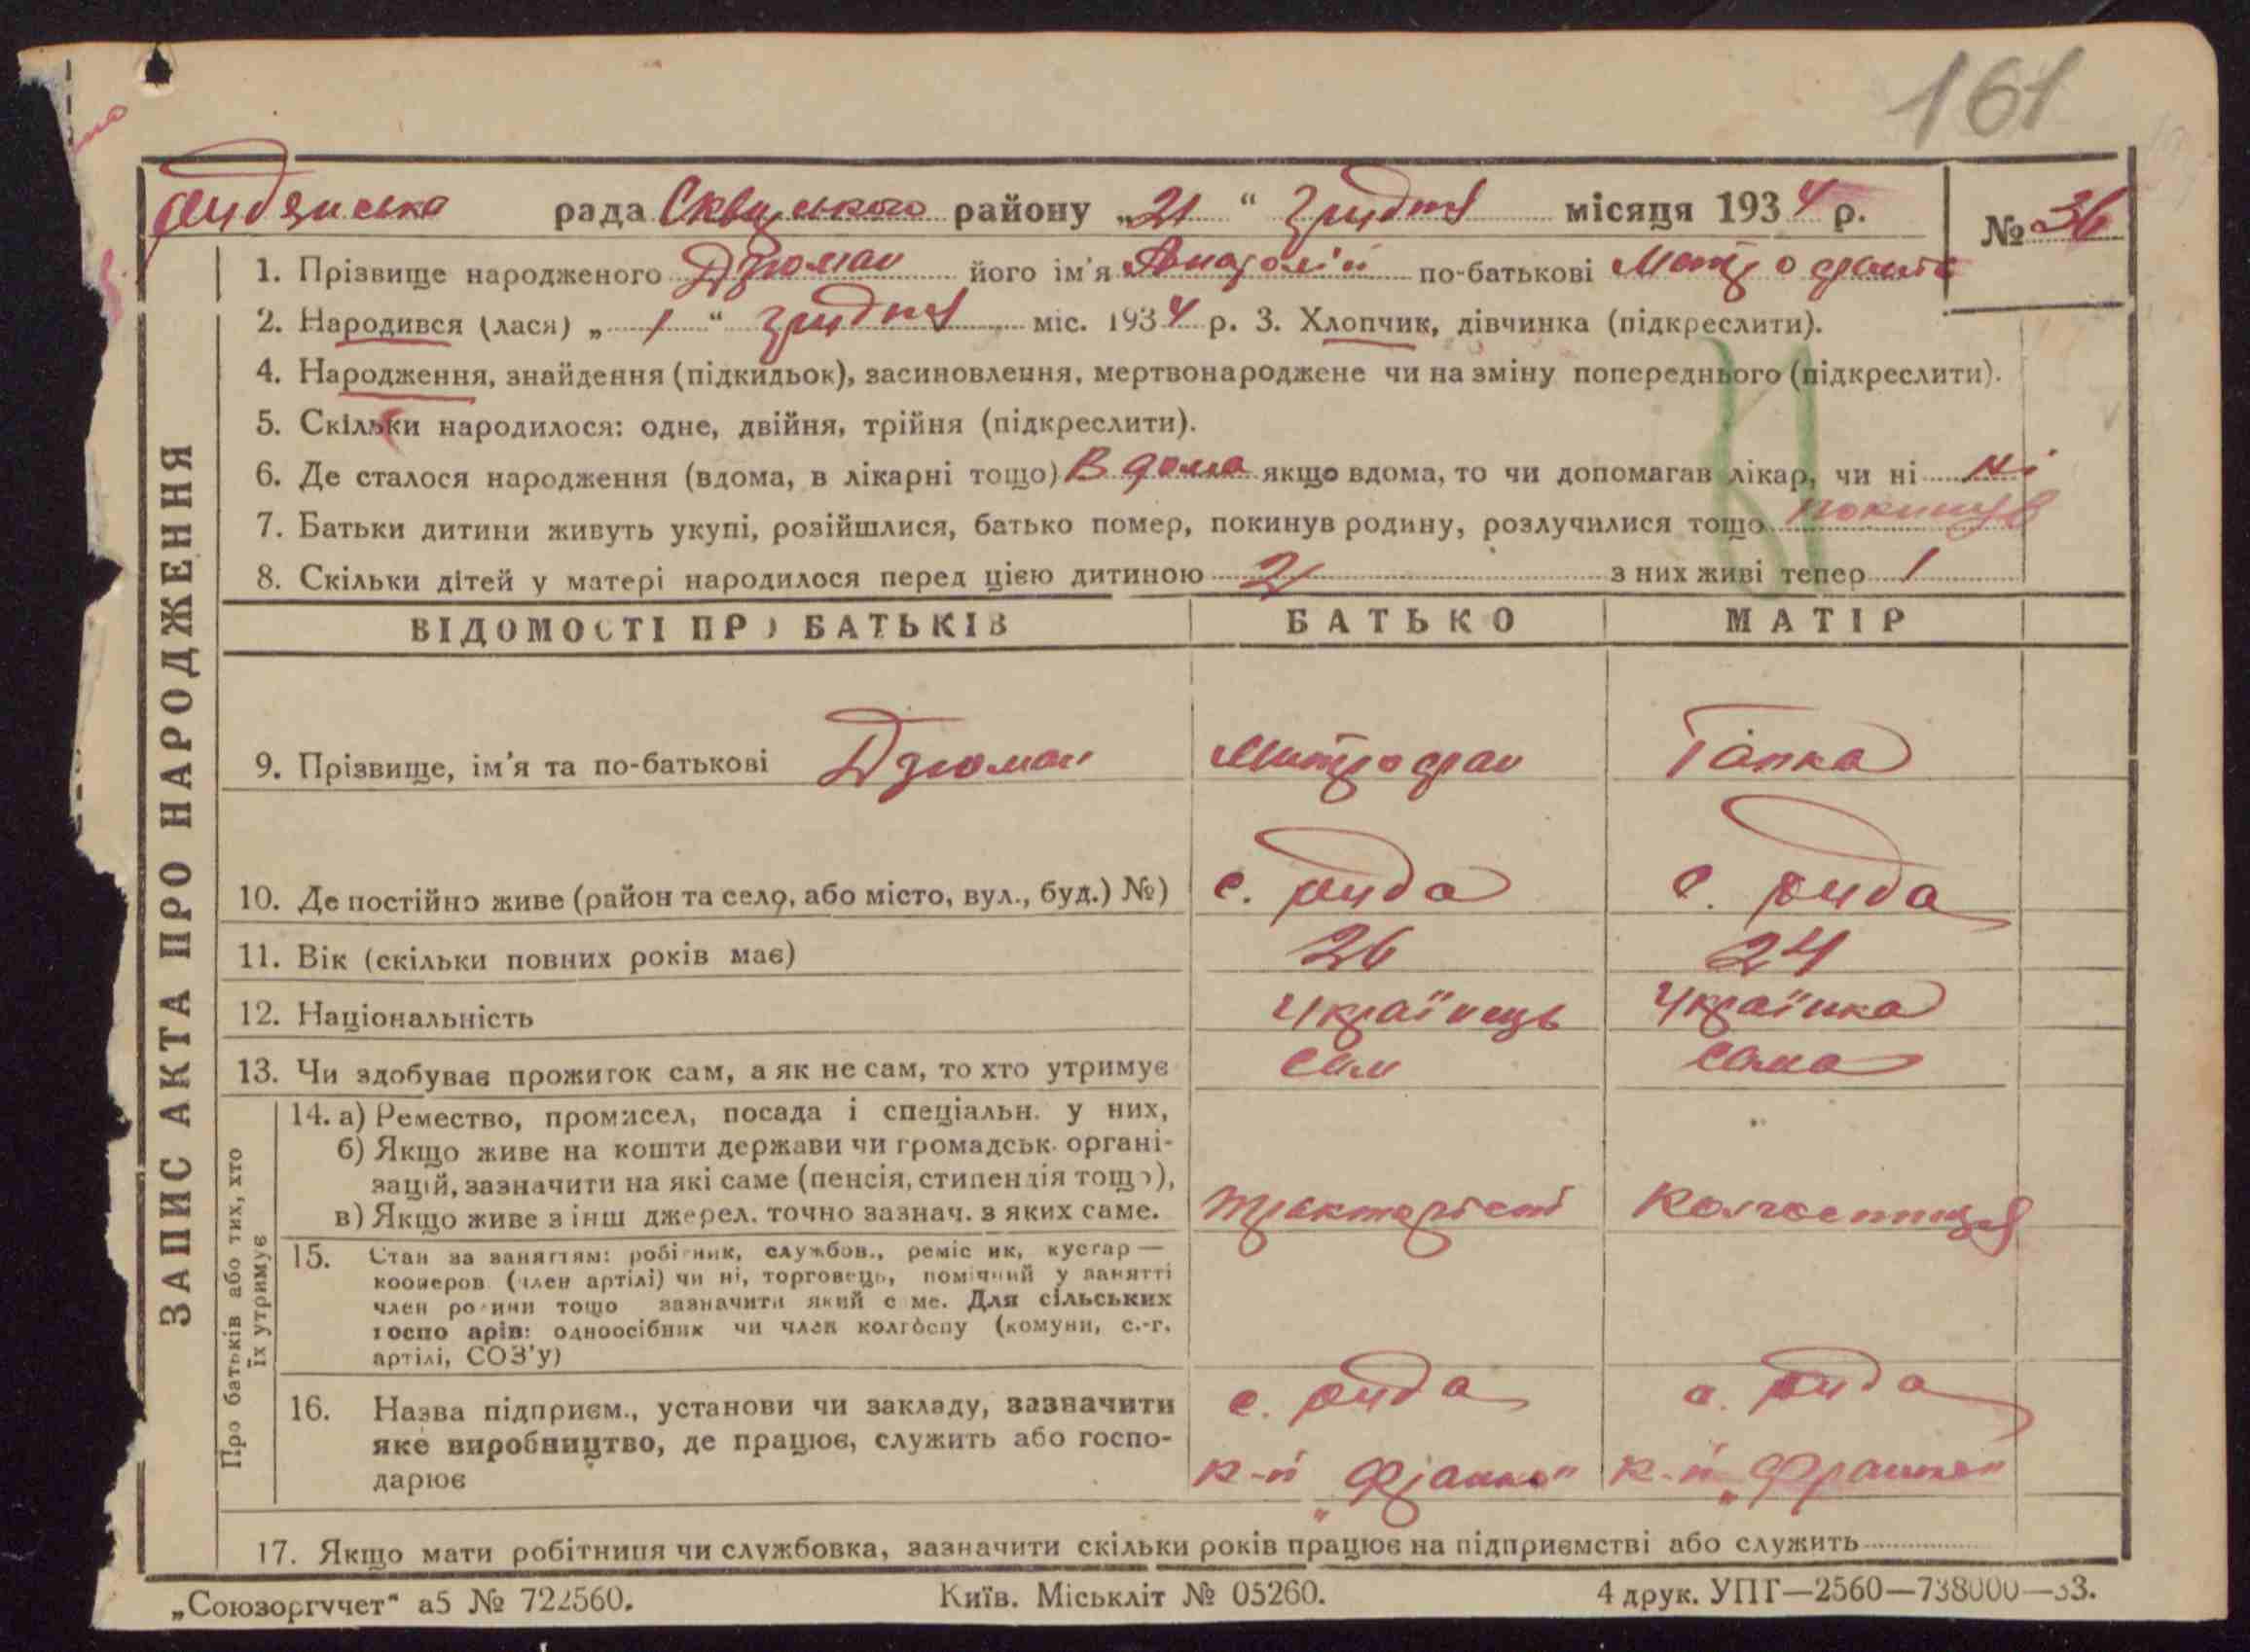 161
Рудянська рада Сквирського району „21“ грудня місяця 1934 р. № 36
1. Прізвище народженого Дзюман його ім'я Анатолій по-батькові
2. Народився (лася) „1“ грудня міс. 1934 р. 3. Хлопчик, дівчинка (підкреслити).
4. Народження, знайдення (підкидьок), засиновлення, мертвонароджене чи на зміну попереднього (підкреслити).
5. Скільки народилося: одне, двійня, трійня (підкреслити).
6. Де сталося народження (вдома, в лікарні тощо) В дома якщо вдома, то чи допомагав лікар, чи ні ні
7. Батьки дитини живуть укупі, розійшлися, батько помер, покинув родину, розлучилися тощо покинув
8. Скільки дітей у матері народилося перед цією дитиною 2 з них живі тепер 1
ВІДОМОСТІ ПРО БАТЬКІВ БАТЬКО МАТІР
9. Прізвище, ім'я та по-батькові Дзюман Митрофан Гапка
10. Де постійно живе (район та село, або місто, вул., буд.) №) с. Руда с. Руда
11. Вік (скільки повних років має) 26 24
12. Національність Українець Українка
13. Чи здобуває прожиток сам, а як не сам, то хто утримує сам сама
14. а) Ремество, промисел, посада і спеціальн. у них,
б) Якщо живе на кошти держави чи громадськ. органі-
зацій, зазначити на які саме (пенсія, стипендія тощо),
в) Якщо живе з інш джерел. точно зазнач. з яких саме. тракторист колгоспниця
15. Стан за заняттям: робітник, службов., реміс ик, кустар —
кооперов (член артілі) чи ні, торговець, помічний у занятті
член родини тощо зазначити який саме. Для сільських
господарів: одноосібник чи член колгоспу (комуни, с.-г.
артілі, СОЗ'у)
16. Назва підприєм., установи чи закладу, зазначити с. Руда с. Руда
яке виробництво, де працює, служить або госпо-
дарює к-п „Франка“ к-п „Франка“
17. Якщо мати робітниця чи службовка, зазначити скільки років працює на підприємстві або служить
„Союзоргучет“ а5 № 722560. Київ. Міськліт № 05260. 4 друк. УПТ—2560—738000—33.
ЗАПИС АКТА ПРО НАРОДЖЕННЯ
Про батьків або тих, хто
їх утримує